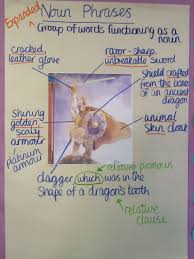 Expanded
Noun Phrases
Group of words functioning as a
noun.
cracked,
leather glove
razor-sharp,
unbreakable sword
shield crafted
from the bones
of an ancient
dragon
Shining
golden
scaly
armour
/platinum
armour
animal
skin cloak
relative pronoun
dagger which was in the
shape of a dragon's tooth
relative
clause